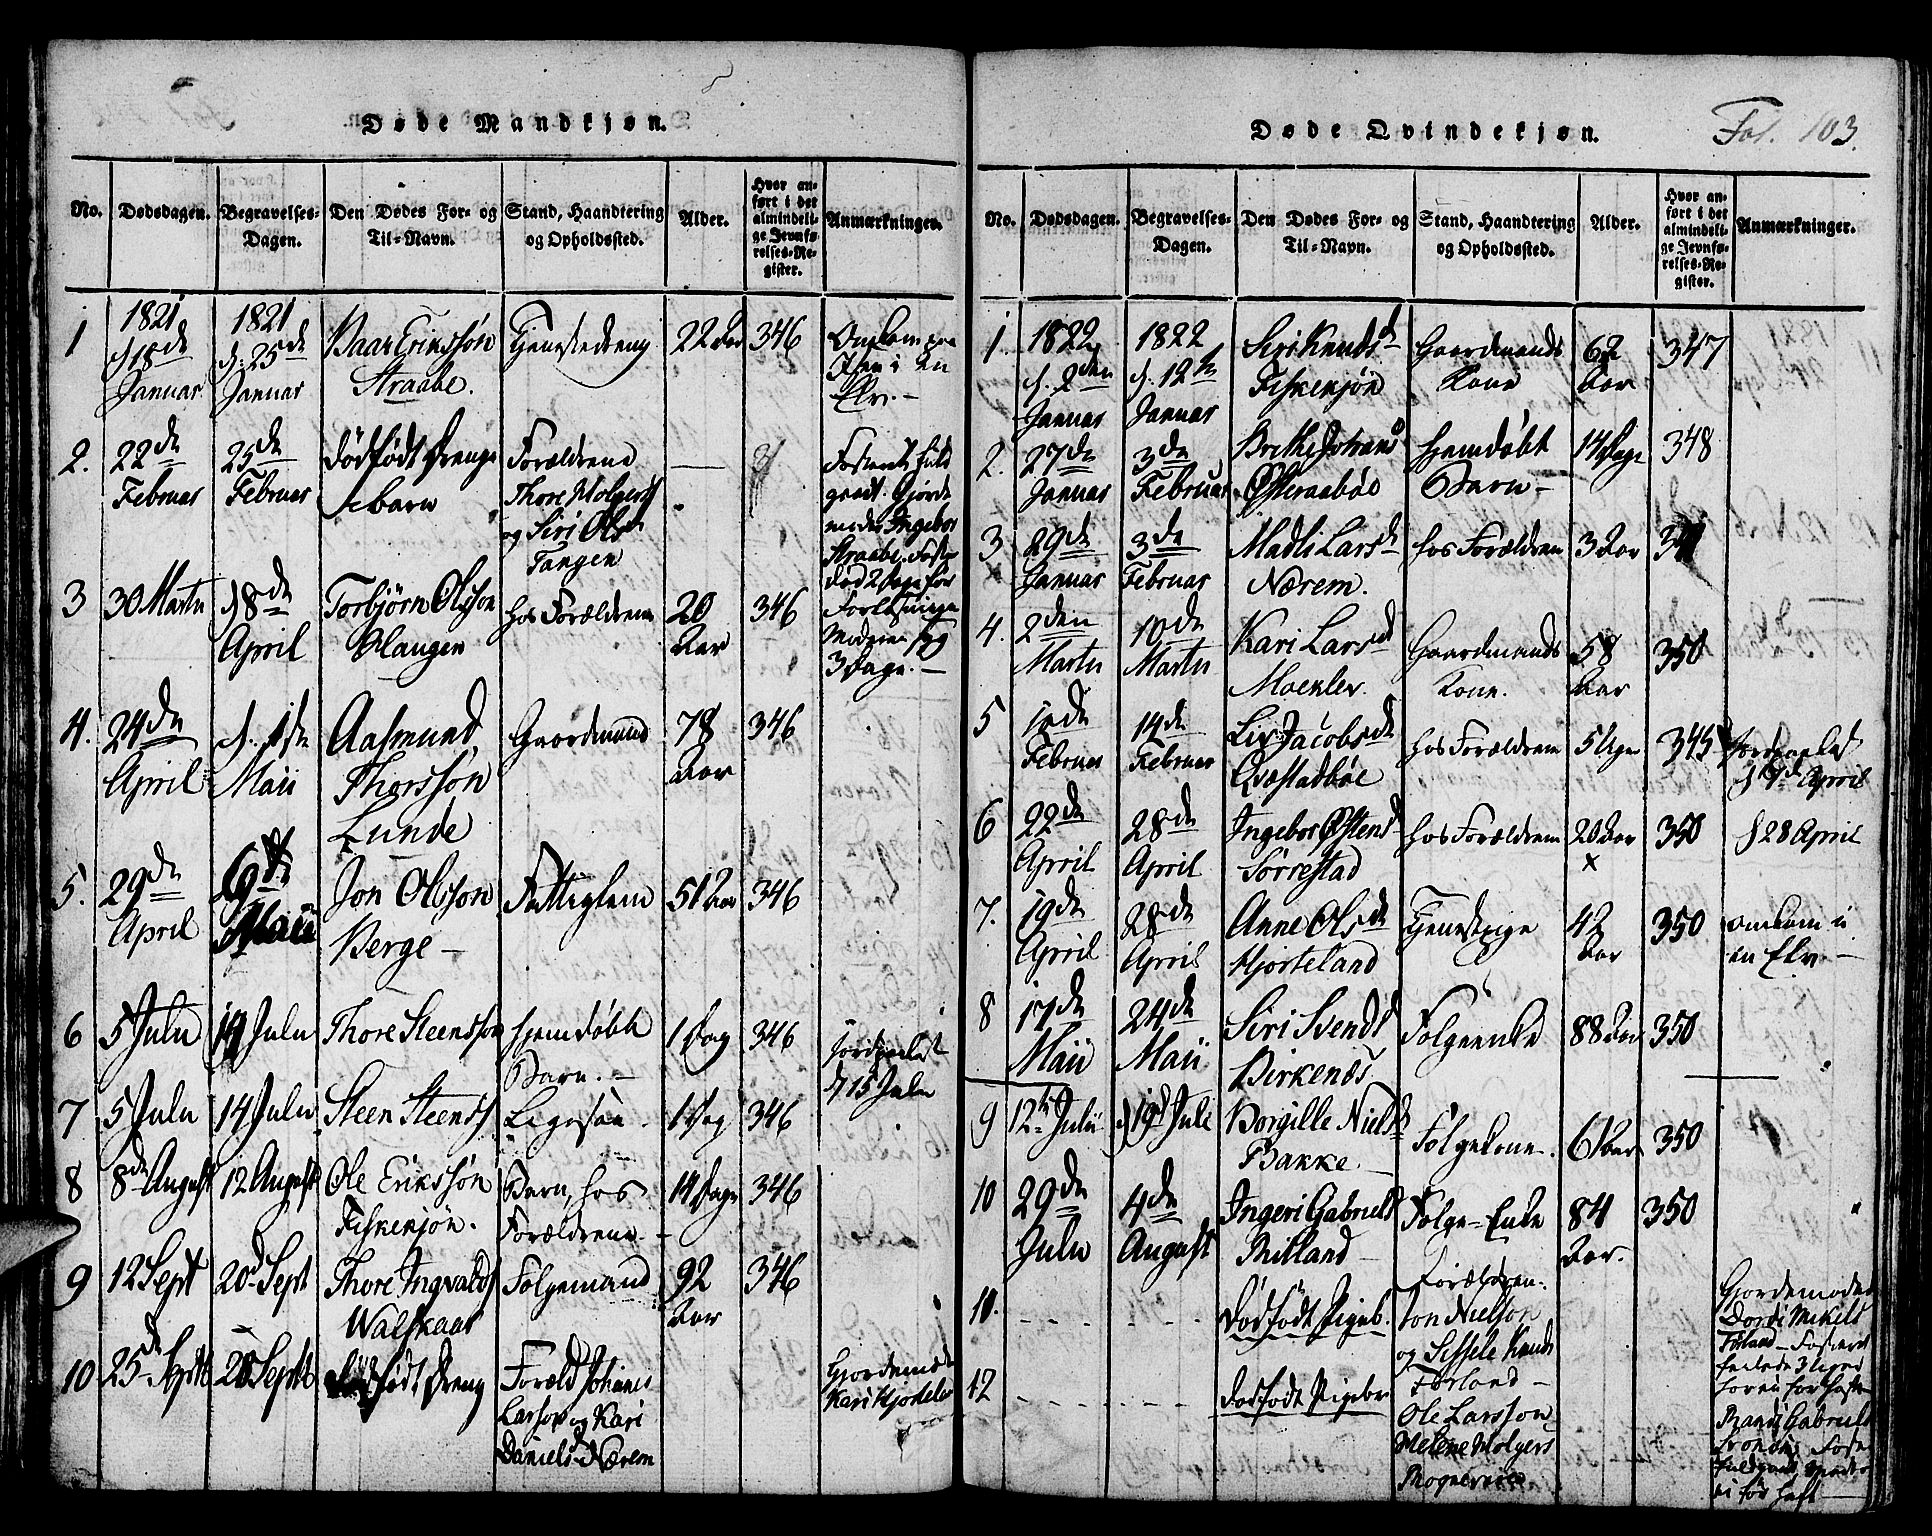 Døde Mandkjøn.
No.
Dødsdagen.
Begravelses-
Dagen.
Den Dødes For- og
Til-Navn.
Stand, Haandtering
og Opholdssted.
Alder.
Hvor an-
ført i det
almindeli-
ge Jevnfø-
relses-Re-
gister.
Anmærkninger.
1
1821
d 18de
Januar
1821
d. 25de
Januar
Baar Erikssøn
Straabe.
Tjenestedreng
22 Aar
346
Omkom paa
Isen i en
Elv.-
2.
22de
Februar
25de
Februar
dødfødt Drenge
barn
Forældrene
Thore Holgers
og Siri Olsd
Tangen
Gjorde
moder Ingebor
Straabe. Foster
død 2 Dage før
3 Dage.-
3
30 Martii
d 8de
April
Torbjørn Olsson
Haugen
hos Forældrene
20
Aar
346
4.
24de
April
d. 1ste
Maii
Aasmund
Thorssøn
Lunde
Gaardmand
78
Aar
346
5.
29de
April
6te
Maii
Jon Olsson
Berge-
Fattiglem
51 Aar
346
6
5 Julii
14 Julii
Thore Steenssøn
hjemdøbte
Barn.-
1 Dag
346
Jordpaakast
d 15 Julii
7
5 Julii
14 Julii
Steen Steenss
Ligesaa
1 Dag
346
8
8de August
12 August
Ole Erikssøn
Fiskensjøn.
Barn, hos
Forældrene-
14 Dage
346
9
12 Sept
20d Sept
Thore Ingvalds
Walskaar
Folgemand
92
Aar
346
10
25de Septb
28 Septb
dødfødt Dreng
Foræld Johannes
Larsson og Kari
Danielsd Nærem
Gjordemoder
Kari Hjortela
Døde Qvindekjøn.
Fol. 103.
No.
Dødsdagen.
Begravelses-
Dagen.
Den Dødes For- og
Til-Navn.
Stand, Haandtering
og Opholdssted.
Alder.
Hvor an-
ført i det
almindeli-
ge Jevnfø-
relses-Re-
gister.
Anmærkninger.
1.
1822
d. 2den
Januar
1822
d. 12te
Januar
Siri Knudsd
Fiskensjøn
Gaardmands
Kone
62
Aar
347
2.
27de
Januar
3de
Februar
Brithe Johans
Østeraabøe
hjemdøbt
Barn-
14 Dage
348
3
x
29de
Januar
3de
Februar
Madli Larsd
Nærem.
hos Forældrene
3 Aar
4.
2den
Martii
10de
Martii
Kari Larsd
Moekler.
Gaardmands
Kone.
58
Aar
350
5
12de
Februar
14de
Februar
Liv Jacobsd
Qvæstadbøe
hos Forældrene
5 Uger
345
Jordpaakast
d 17de April
6
22de
April
28de
April
Ingebor Østensd
Sørrestad
hos Forældrene
20 Aar
x
350
d 28 April
7.
19de
April
28de
April
Anne Olsd
Hjorteland
Tjenestpige
42
Aar
350
omkom i
en Elv.-
8
17de
Maii
24de
Maii
Siri Svends
Birkenæs
Folgeenke
88 Aar
350
9
12te Julii
d 19d Juli
Borgille Niels
Bakke.-
Følgekone.
61 Aar
350
10
29de
Julii
4de
August
Ingeri Gabrielsd
Birkeland-
Folge-Enke
84
Aar.
350
10.
- - - - - -
dødfødt Pigeb.
Forældren:
Jon Nielson
og Sissele Knuds
Førland-
Gjordemoder
Dordi Mikels
Førland-Fosteret
12
- - - - - -
dødfødt Pigebr
Ole Larsson
Melene Holgers
Rando Gabriels